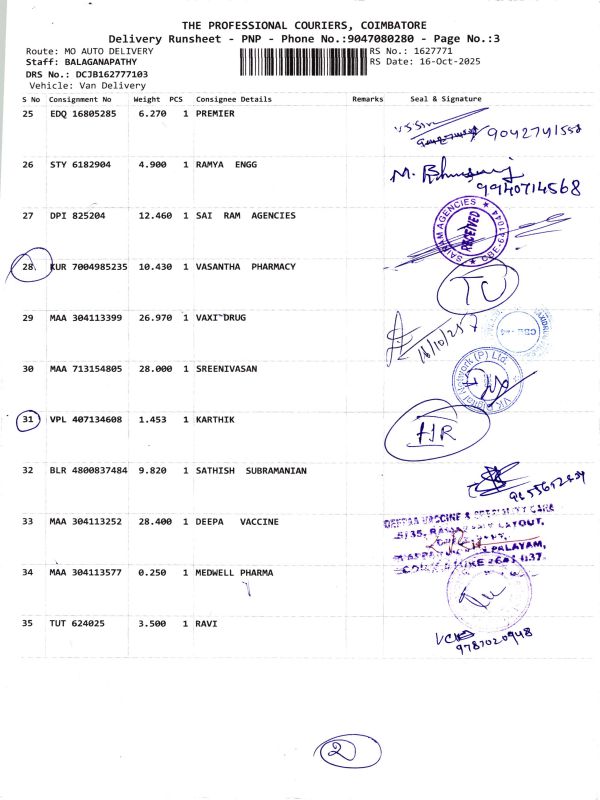 THE PROFESSIONAL COURIERS, COIMBATORE
Delivery Runsheet - PNP - Phone No.:9047080280 - Page No.:3
Route: MO AUTO DELIVERY
RS No.: 1627771
Staff: BALAGANAPATHY
RS Date: 16-Oct-2025
DRS No.: DCJB162777103
Vehicle: Van Delivery
S No Consignment No Weight PCS Consignee Details Remarks Seal & Signature
25 EDQ 16805285 6.270 1 PREMIER
26 STY 6182904 4.900 1 RAMYA ENGG
9940714568
27 DPI 825204 12.460 1 SAI RAM AGENCIES
SAIRAM AGENCIES
RECEIVED
28 KUR 7004985235 10.430 1 VASANTHA PHARMACY
29 MAA 304113399 26.970 1 VAXI DRUG
30 MAA 713154805 28.000 1 SREENIVASAN
31 VPL 407134608 1.453 1 KARTHIK
32 BLR 4800837484 9.820 1 SATHISH SUBRAMANIAN
33 MAA 304113252 28.400 1 DEEPA VACCINE
DEEPAA VACCINE & SPECIALITY CARE
34 MAA 304113577 0.250 1 MEDWELL PHARMA
35 TUT 624025 3.500 1 RAVI
9787020948
2